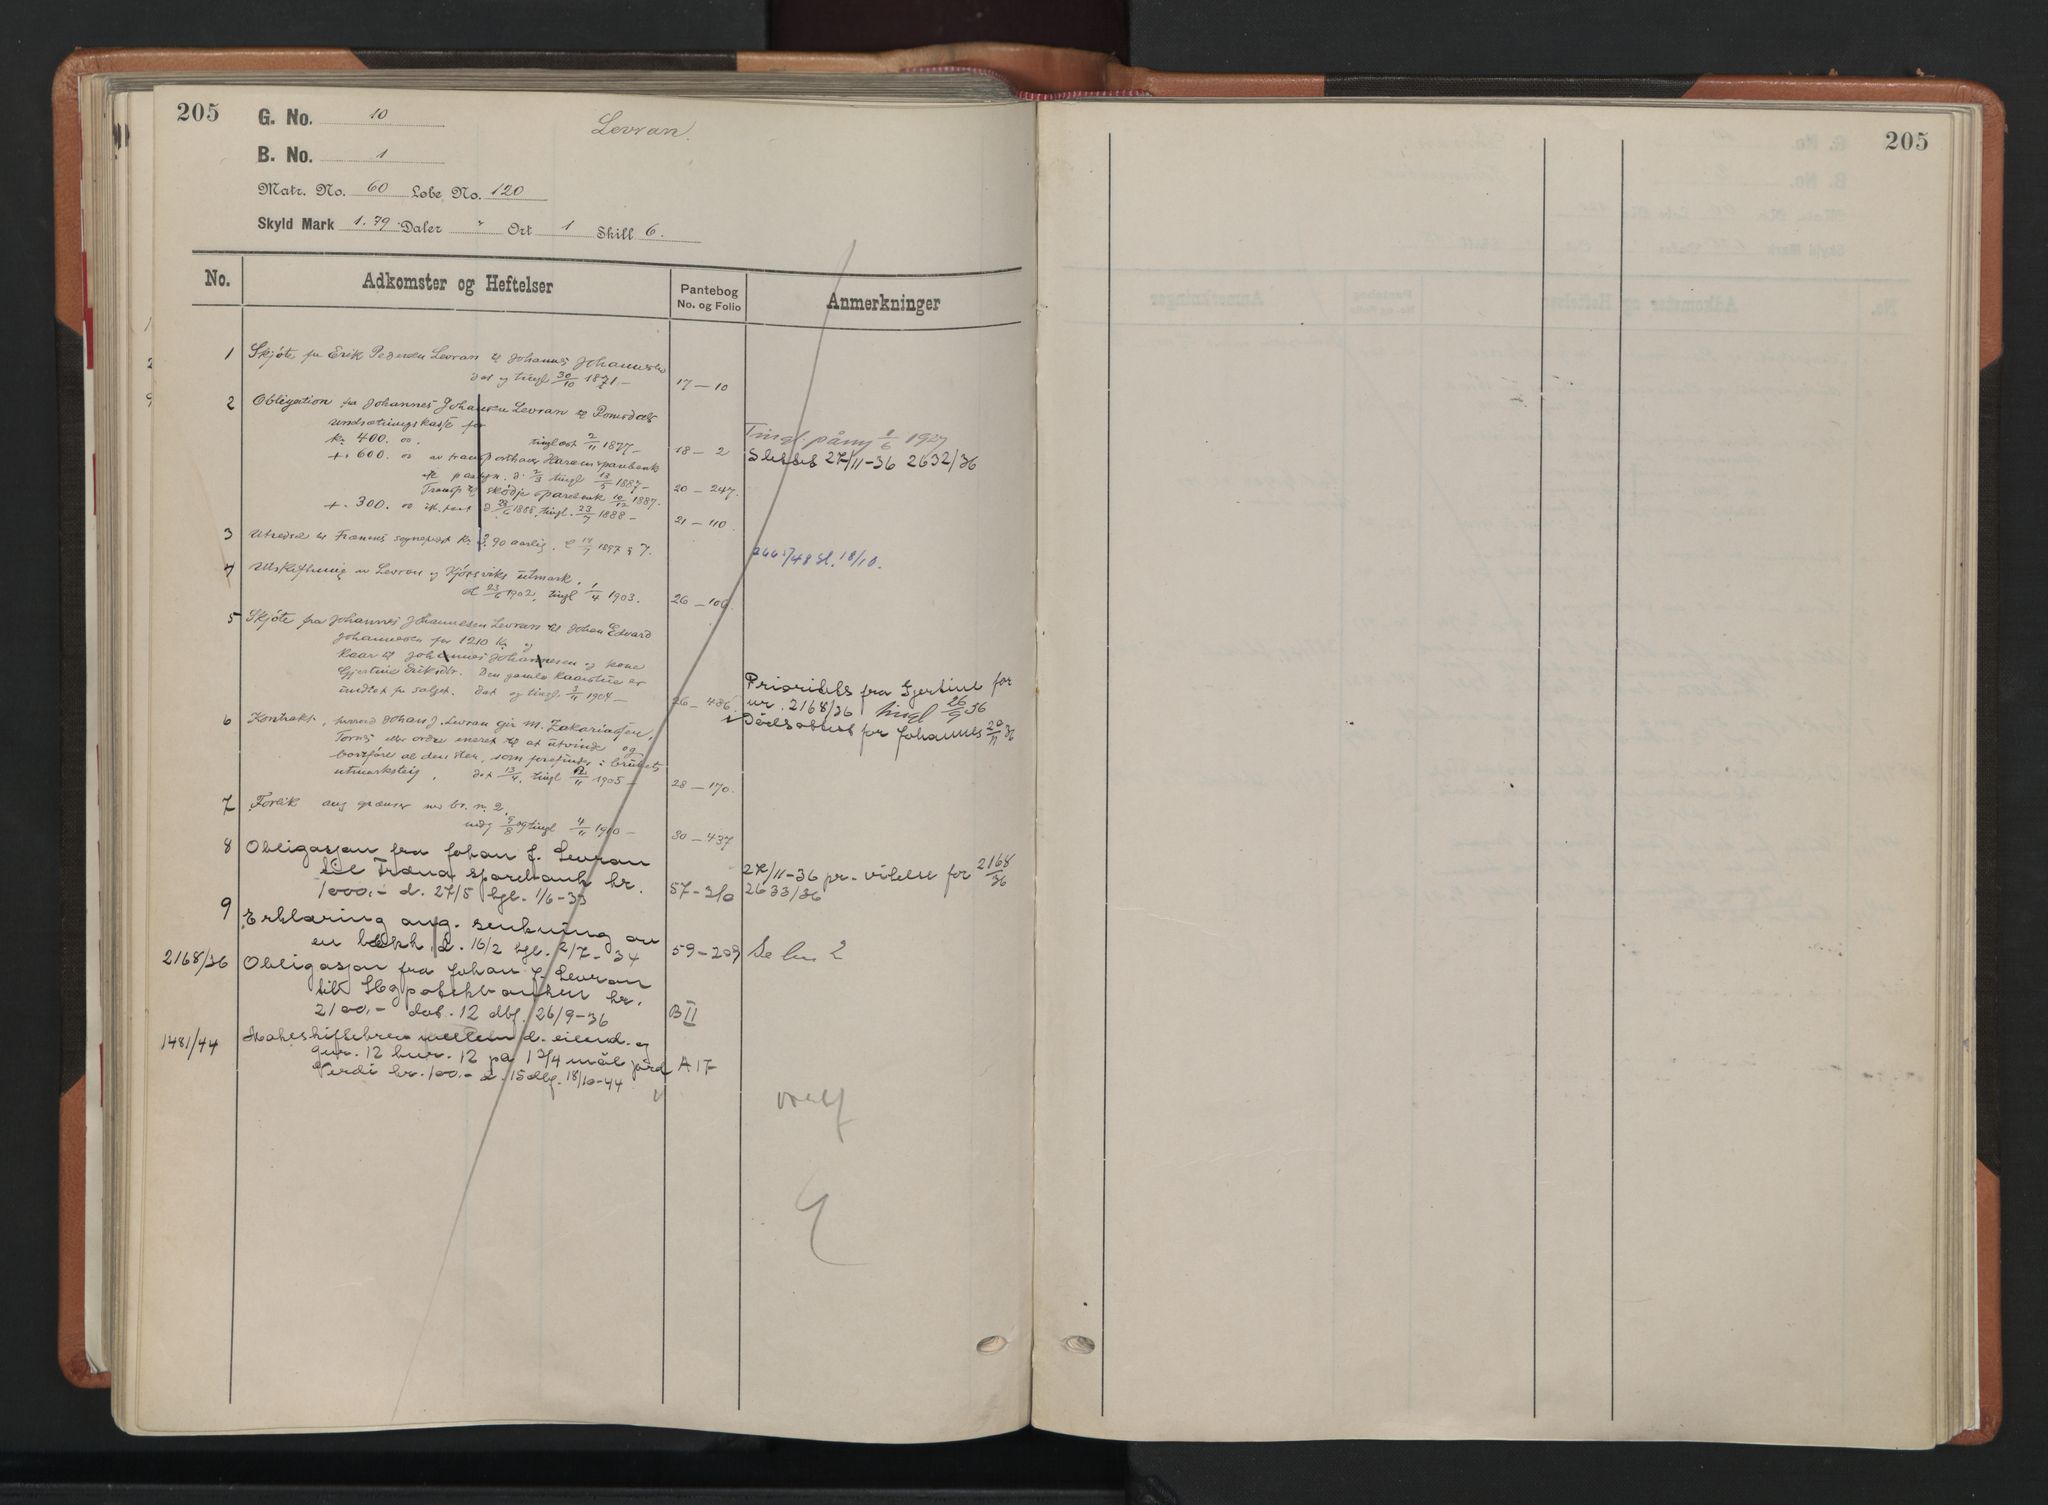 205
G. No. 10
Levran.
B. No. 1
Matr. No. 60 Løbe No. 120
Skyld Mark 1.79 Daler " Ort 1 Skill 6.
No. Adkomster og Heftelser Pantebog No. og Folio Anmerkninger
1 Skjöte fra Erik Pedersen Levran til Johannes Johannesen
dat og tingl 30/10 1871.- 17-10
2 Obligation fra Johannes Johansen Levran til Romsdals
undsætningskasse for
kr 400. 00. tinglæst 2/11 1877- 18-2 Tingl. påny 1/6 1927
+. 600. 00 Harams sparebank Slettet 27/11-36 2632/36
d. 2/3 tingl 13/5 1887- 20-247.
Transp til Skødje sparebank 10/12 1887.
+. 300. 00 1888, tingl. 23/7 1888- 21-110.
3 Utredsel til Frænens sognepræst kr 90 aarlig. 14/7 1897 § 7. 2665/48 sl. 18/10.
4 Utskiftning av Levran og Hjørsviks utmark.
23/6 1902, tingl 1/4 1903. 26-106.
5 Skjöte fra Johannes Johannesen Levran til Johan Edvard
Johannesen for 1210 Kr og
kaar til Johannes Johannesen og kone
Gjertine Eriksdtr. Den gamle kaarstue er
undtat fra salget. dat og tingl. 3/11 1904- 26-436. Prioritets fra Gjertine for
nr. 2168/36 tingl 26/9 36
Dödsattest for Johannes 20/11 36
6 Kontrakt, hvorved Johan J. Levran gir M. Zakariassen,
Tornes eller ordre eneret til at utvinde og
bortføre al den sten, som forefindes i brukets
utmarksteig, dat 13/4, tingl 1905- 28-170.
7 Forlik ang grænser med br. n. 2.
9/8 og tingl 4/11 1910- 30-437
8 Obligasjon fra Johan J. Levran
til Fræna sparebank kr.
1000.- d. 27/5 tgl. 1/6-33 57-310 27/11-36 pr. vikelse for 2168/36
2633/36
9 Erklæring ang. senkning av
en bekk, d. 16/2 tgl. 2/7-34 59-209 Se bnr 2
2168/36 Obligasjon fra Johan J. Levran
til Hypotekbanken kr.
2100.- dat. 12 dbf. 26/9-36 B II
1481/44 Makeskiftebrev mellem d. eiend. og
gnr. 12 bnr. 12 på 1 3/4 mål jord A 17
Verdi kr. 100.- d. 15 dbf. 18/10-44
205